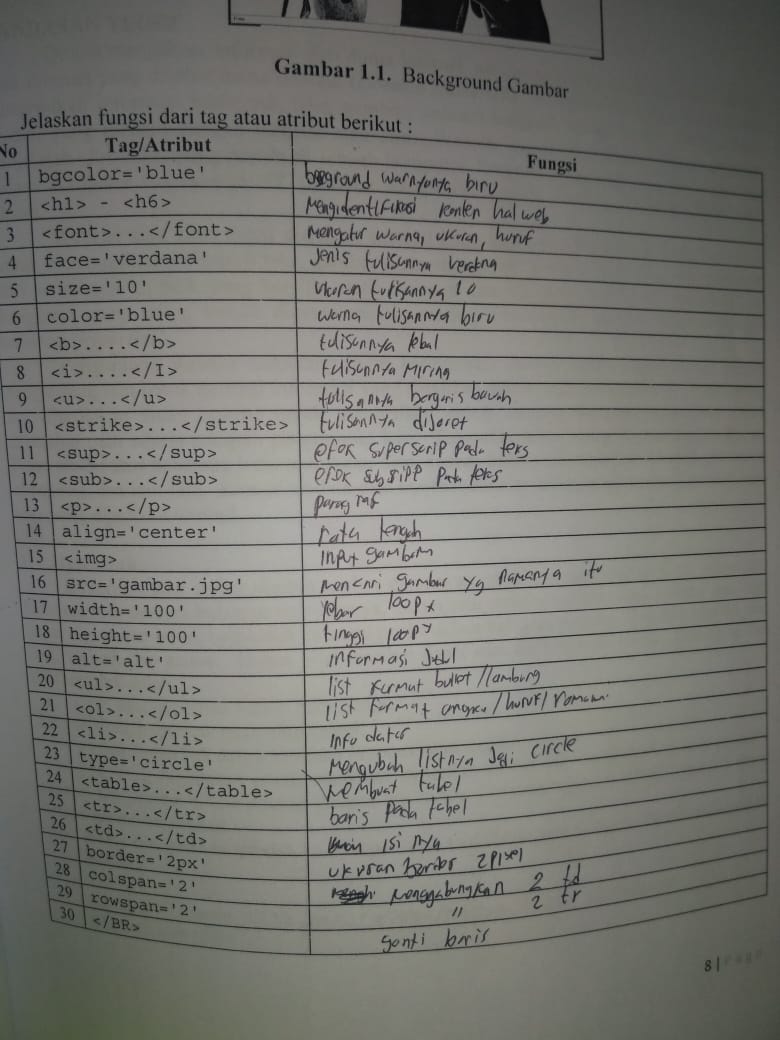 Gambar 1.1. Background Gambar
Jelaskan fungsi dari tag atau atribut berikut :
No Tag/Atribut Fungsi
1 bgcolor='blue' warnyanya biru
2 <h1> - <h6> Mengidentifikasi konten hal web
3 <font>...</font> Mengatur warna, ukuran, huruf
4 face='verdana' Jenis tulisannya
5 size='10' ukuran tulisannya 10
6 color='blue' warna tulisannya biru
7 <b>....</b> tulisannya tebal
8 <i>....</I> tulisannya Miring
9 <u>...</u> tulisannya bergaris bawah
10 <strike>...</strike> tulisannya dicoret
11 <sup>...</sup> efek superscrip pada teks
12 <sub>...</sub> efek pada teks
13 <p>...</p> paragraf
14 align='center' rata tengah
15 <img> Input gambar
16 src='gambar.jpg' Mencari gambar yg Namanya itu
17 width='100' lebar 100px
18 height='100' tinggi 100px
19 alt='alt' informasi
20 <ul>...</ul> list format bullet/lambang
21 <ol>...</ol> list format angka/huruf/romawi
22 <li>...</li> Info daftar
23 type='circle' Mengubah listnya jadi circle
24 <table>...</table> Membuat tabel
25 <tr>...</tr> baris pada tabel
26 <td>...</td> isi nya
27 border='2px' ukuran border 2 pixel
28 colspan='2' Menggabungkan 2 td
29 rowspan='2' " 2 tr
30 </BR> ganti baris
8 | Page